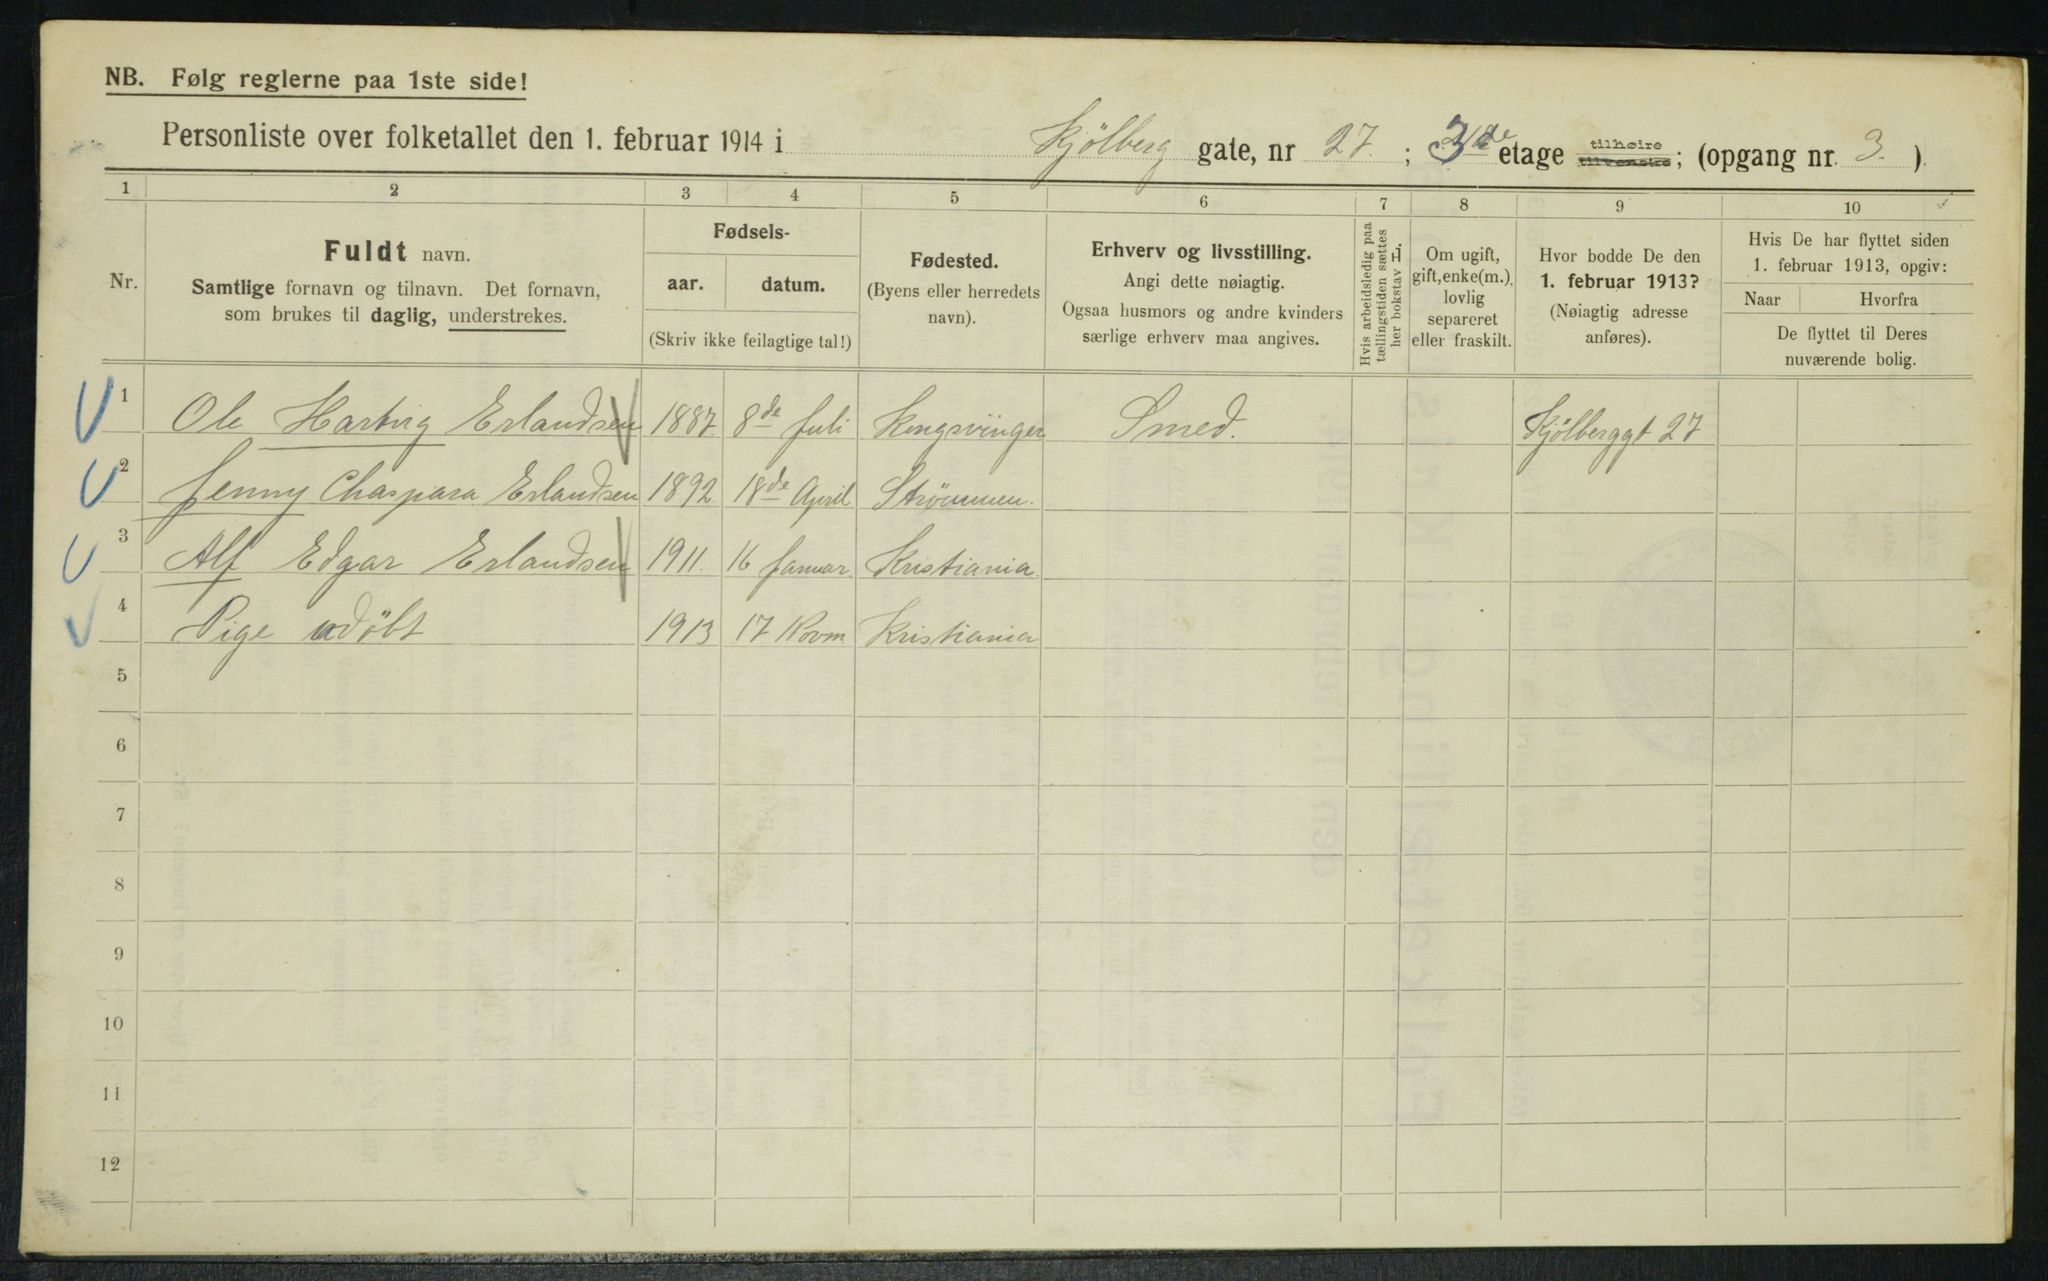 NB. Følg reglerne paa 1ste side!
Personliste over folketallet den 1. februar 1914 i Kjölberg gate, nr 27. ; 3de etage tilhøire tilvenstre; (opgang nr. 3. ).
1 2 3 4 5 6 7 8 9 10
Nr.
Fuldt navn.
Samtlige fornavn og tilnavn. Det fornavn,
som brukes til daglig, understrekes.
Fødsels-
aar. datum.
(Skriv ikke feilagtige tal!)
Fødested.
(Byens eller herredets
navn).
Erhverv og livsstilling.
Angi dette nøiagtig.
Ogsaa husmors og andre kvinders
særlige erhverv maa angives.
Hvis arbeidsledig paa
tællingstiden sættes
her bokstav L.
Om ugift,
gift, enke(m.),
lovlig
separeret
eller fraskilt.
Hvor bodde De den
1. februar 1913?
(Nøiagtig adresse
anføres).
Hvis De har flyttet siden
1. februar 1913, opgiv:
Naar Hvorfra
De flyttet til Deres
nuværende bolig.
1 Ole Hartvig Erlandsen 1887. 8de Juli Kongsvinger Smed. Kjölberggt 27
2 Jenny Chaspara Erlandsen 1892. 18de April Strömmen.
3 Alf Edgar Erlandsen 1911. 16 Januar. Kristiania.
4 Pige udöbt 1913 17 Novm. Kristiania
5
6
7
8
9
10
11
12